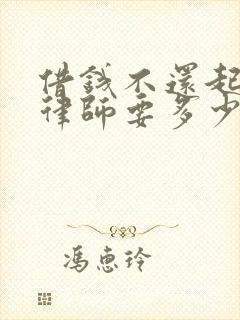 借錢不還起
律師要多少
馮惠玲